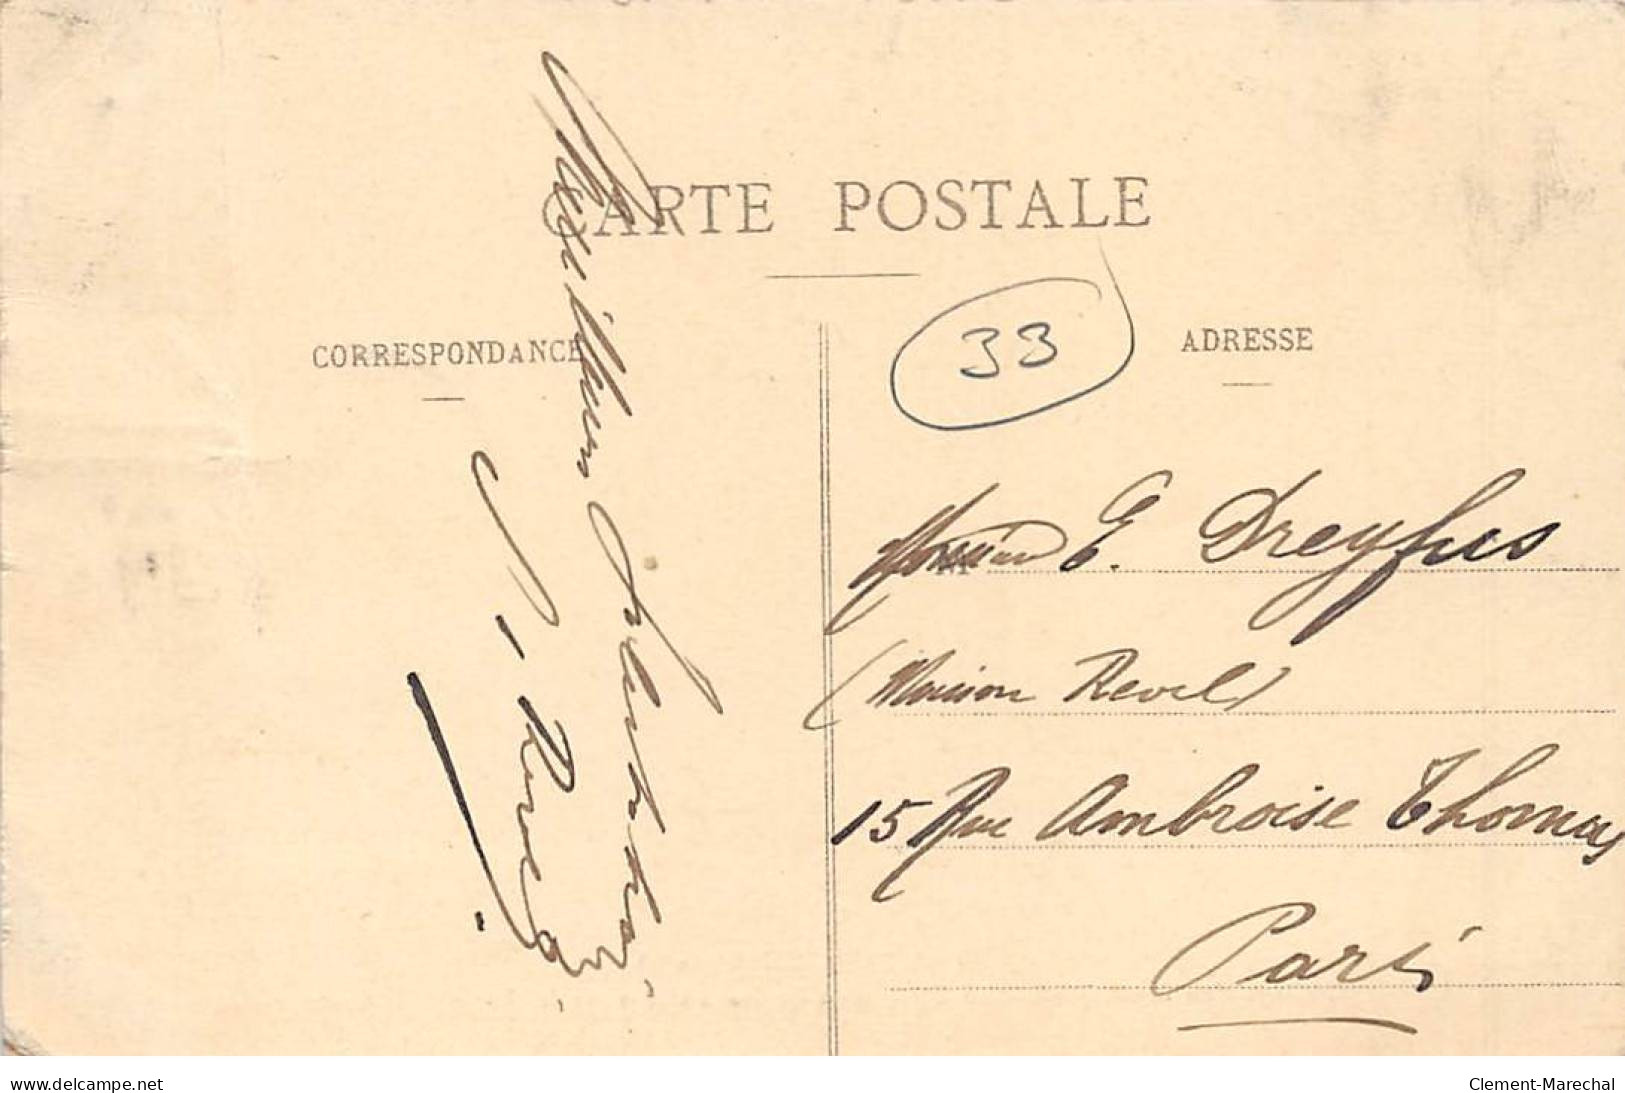 CARTE POSTALE
CORRESPONDANCE
ADRESSE
33
Meilleures salutations
Monsieur E. Dreyfus
(Maison Revel)
15 Rue Ambroise Thomas
Paris
www.delcampe.net
Clement-Marechal